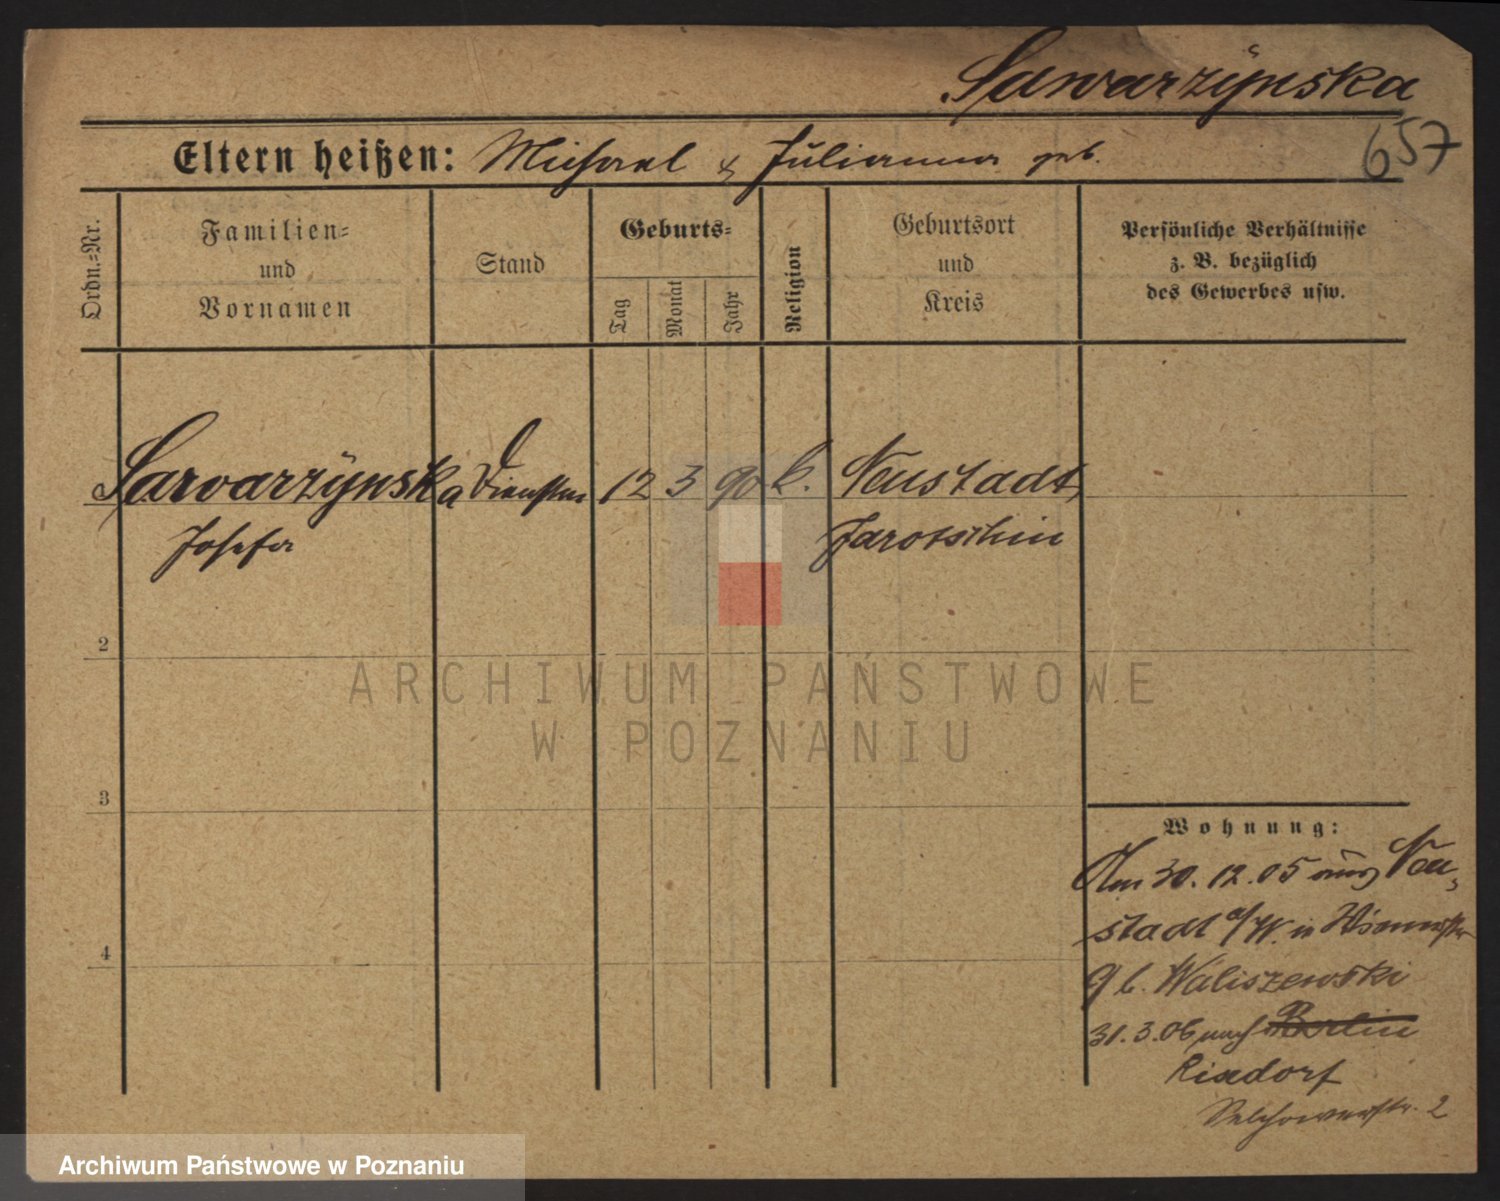 Sawarzynska
657
Eltern heißen: Michael & Julianna geb.
Ordn.=Nr.
Familien=
und
Vornamen
Stand
Geburts=
Tag
Monat
Jahr
Religion
Geburtsort
und
Kreis
Persönliche Verhältnisse
z. B. bezüglich
des Gewerbes usw.
Sawarzynska 12 3 90 k. Neustadt
Josefa Jarotschin
2
3
4
Wohnung:
Am 30.12.05 aus Neu-
stadt a/W. in
9 b. Waliszewski
31.3.06 nach Berlin
Rixdorf
2
ARCHIWUM PAŃSTWOWE
W POZNANIU
Archiwum Państwowe w Poznaniu